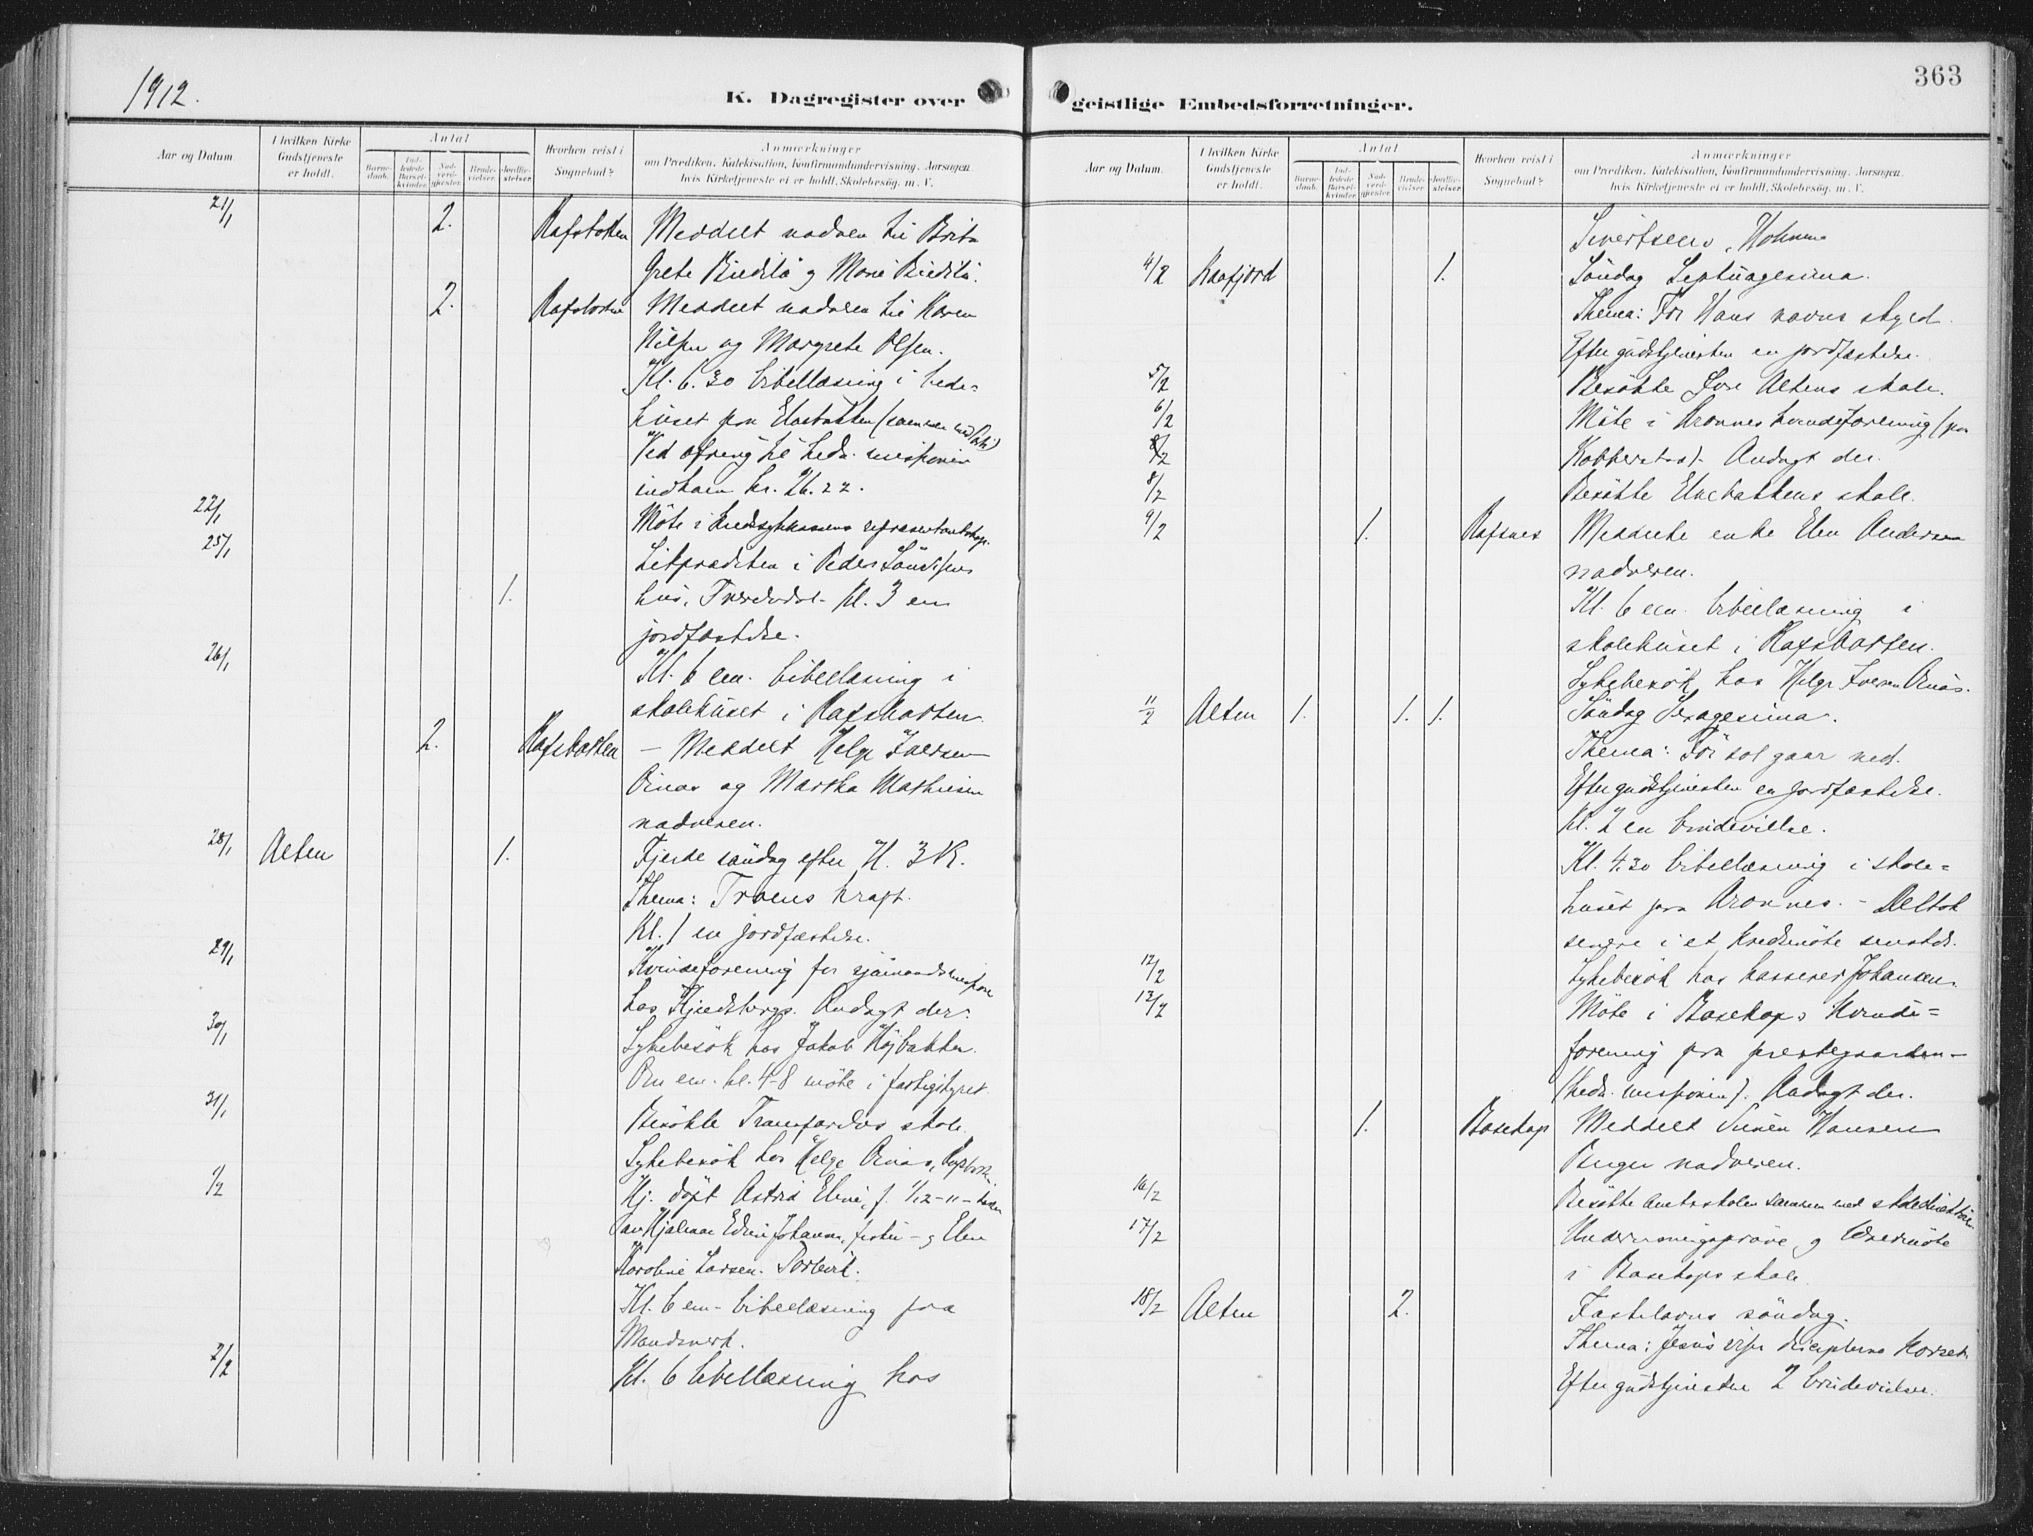 1912.
K. Dagregister over
Aar og Datum.
I hvilken Kirke Gudstjeneste er holdt.
Antal
Barne-daab.
Ind-ledede Barsel-kvinder.
Nad-verd-gjester.
Brude-vielser.
Jordfæ-stelser.
Hvorhen reist i Sognebud?
Anmærkninger
om Prædiken, Katekisation, Konfirmandundervisning, Aarsagen
hvis Kirketjeneste ei er holdt, Skolebesög, m. V.
21/1 2. Rafsbotten Meddelt nadver til Brita
Grete og Marie
2. Rafsbotten Meddelt nadveren til Karen
Nilsen og Margrete Olsen.
Kl. 6.30 bibellæsning i bede-
huset paa Elvebakken (sammen med
Ved ofring til hedn. missionen
indkom kr. 26.22.
22/1 Möte i kredssykekassens representantskap.
25/1 Likprædiken i Peder
1. hus, Tverelvdal. Kl. 3 en
jordfæstelse.
26/1 Kl. 6 em. bibellæsning i
skolehuset i Rafsbotten.
2. Rafsbotten – Meddelt Helge Iversen
Oinas og Martha Mathisen
nadveren.
28/1 Alten 1. Fjerde söndag efter H. 3 K.
Thema: Troens kraft.
Kl. 1 en jordfæstelse.
29/1 Kvindeforening for sjömandsmissionen
hos Andagt der.
30/1 Sykebesök hos Jakob Højbakken.
Om em. kl. 4-8 möte i fattigstyret.
31/1 Besökte skole.
Sykebesök hos Helge Oinas, Rafsbotn.
1/2 Hj. döpt Astrid f. 1/12-11 – datter
av Hjalmar Johansen, fisker – og Elen
Karoline Larsen.
Kl. 6 em. bibellæsning paa
2/2 Kl. 6 bibellæsning hos
363
geistlige Embedsforretninger.
Aar og Datum.
I hvilken Kirke Gudstjeneste er holdt.
Antal
Barne-daab.
Ind-ledede Barsel-kvinder.
Nad-verd-gjester.
Brude-vielser.
Jordfæ-stelser.
Hvorhen reist i Sognebud?
Anmærkninger
om Prædiken, Katekisation, Konfirmandundervisning, Aarsagen
hvis Kirketjeneste ei er holdt, Skolebesög, m. V.
Sivertsen,
4/2 Kaafjord 1. Söndag Septuagesima.
Thema: For Hans navns skyld.
Efter gudstjenesten en jordfæstelse.
5/2 Besökte Övre Altens skole.
6/2 Möte i Aronnes kvindeforening (paa
Andagt der.
8/2 Besökte Elvebakkens skole.
9/2 1. Rafsnes Meddelte enke Elen Andersen
nadveren.
Kl. 6 em. bibellæsning i
skolehuset i Rafsbotten.
Sykebesök hos Helge Iversen Oinas.
11/2 Alten 1. 1. 1. Söndag Sexagesima.
Thema: För sol gaar ned.
Efter gudstjenesten en jordfæstelse.
Kl. 2 en brudevielse.
Kl. 4.30 bibellæsning i skole-
huset paa Aronnes. – Deltok
senere i et kredsmöte
12/2 Sykebesök hos kasserer Johansen.
13/2 Möte i Bosekops kvinde-
forening paa prestegaarden –
(hedn. missionen). Andagt der.
1. Bosekop Meddelt Hansen
nadveren.
16/2 Besökte amtsskolen sammen med skoledirektören.
17/2 Undervisningspröve og
i Bosekops skole.
18/2 Alten 2. Fastelavns söndag.
Thema: Jesus viser disciplerne korset.
Efter gudstjenesten 2 brudevielser.